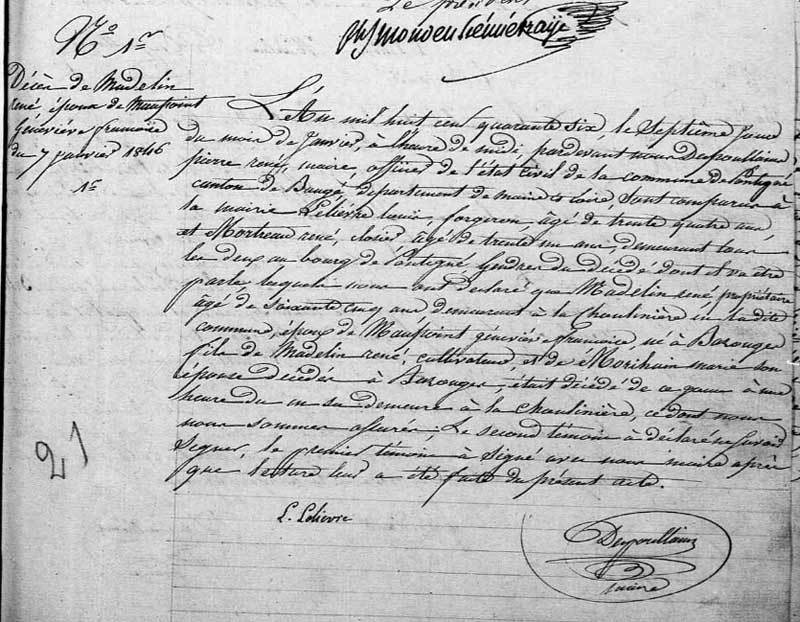 Le président
N.º 1er
Décès de Madelin
rené époux de Maupoint
Géneviève francoise
du 7 janvier 1846
1e
L'An mil huit cent quarante six, le Septième Jour
du mois de Janvier, à l'heure de midi, pardevant nous Despoullains
pierre rené, maire, officier de l'état civil de la commune de Pontigné
canton de Baugé département de maine et loire, sont comparus à
la mairie Lelièvre louis, forgeron, âgé de trente quatre ans,
et Morteau rené, closier, âgé de trente un ans, demeurant tous
les deux au bourg de Pontigné, Gendres du décédé dont il va être
parlé lesquels nous ont déclaré que Madelin rené, propriétaire
âgé de soixante cinq ans demeurant à la Chaulinière en la dite
commune, époux de Maupoint géneviève francoise, né à Barouges
fils de Madelin rené, cultivateur, et de Morihain marie son
épouse décédés à Barouges, était décédé de ce jour à une
heure du en sa demeure à la Chaulinière, ce dont nous
nous sommes assurés; Le second témoin à déclaré ne savoir
signer, le premier témoin à signé avec nous maire après
que lecture leur a été faite du présent acte.
21
L. Lelievre
Despoullains
maire